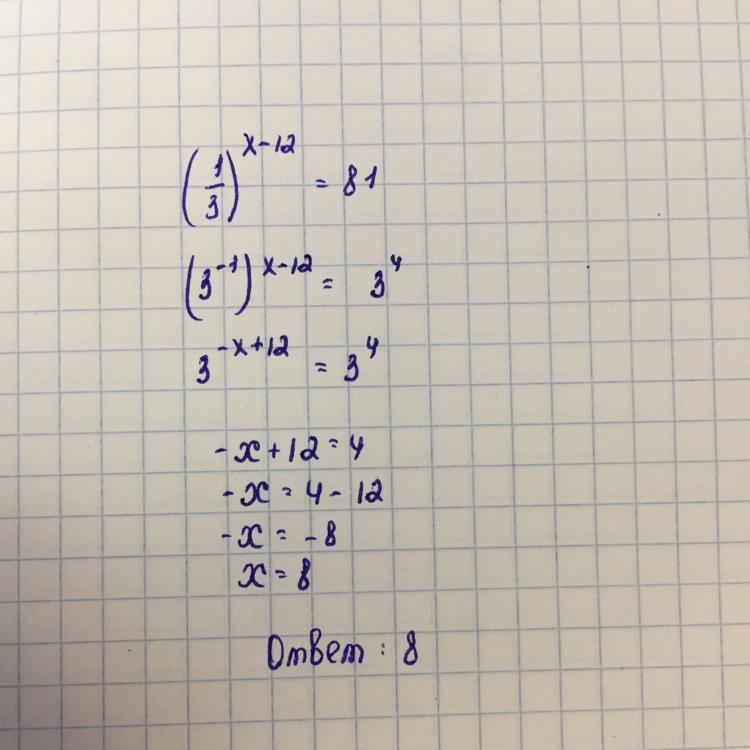 (1/3)^(x-12) = 81
(3^-1)^(x-12) = 3^4
3^(-x+12) = 3^4
-x+12=4
-x=4-12
-x=-8
x=8
Ответ: 8